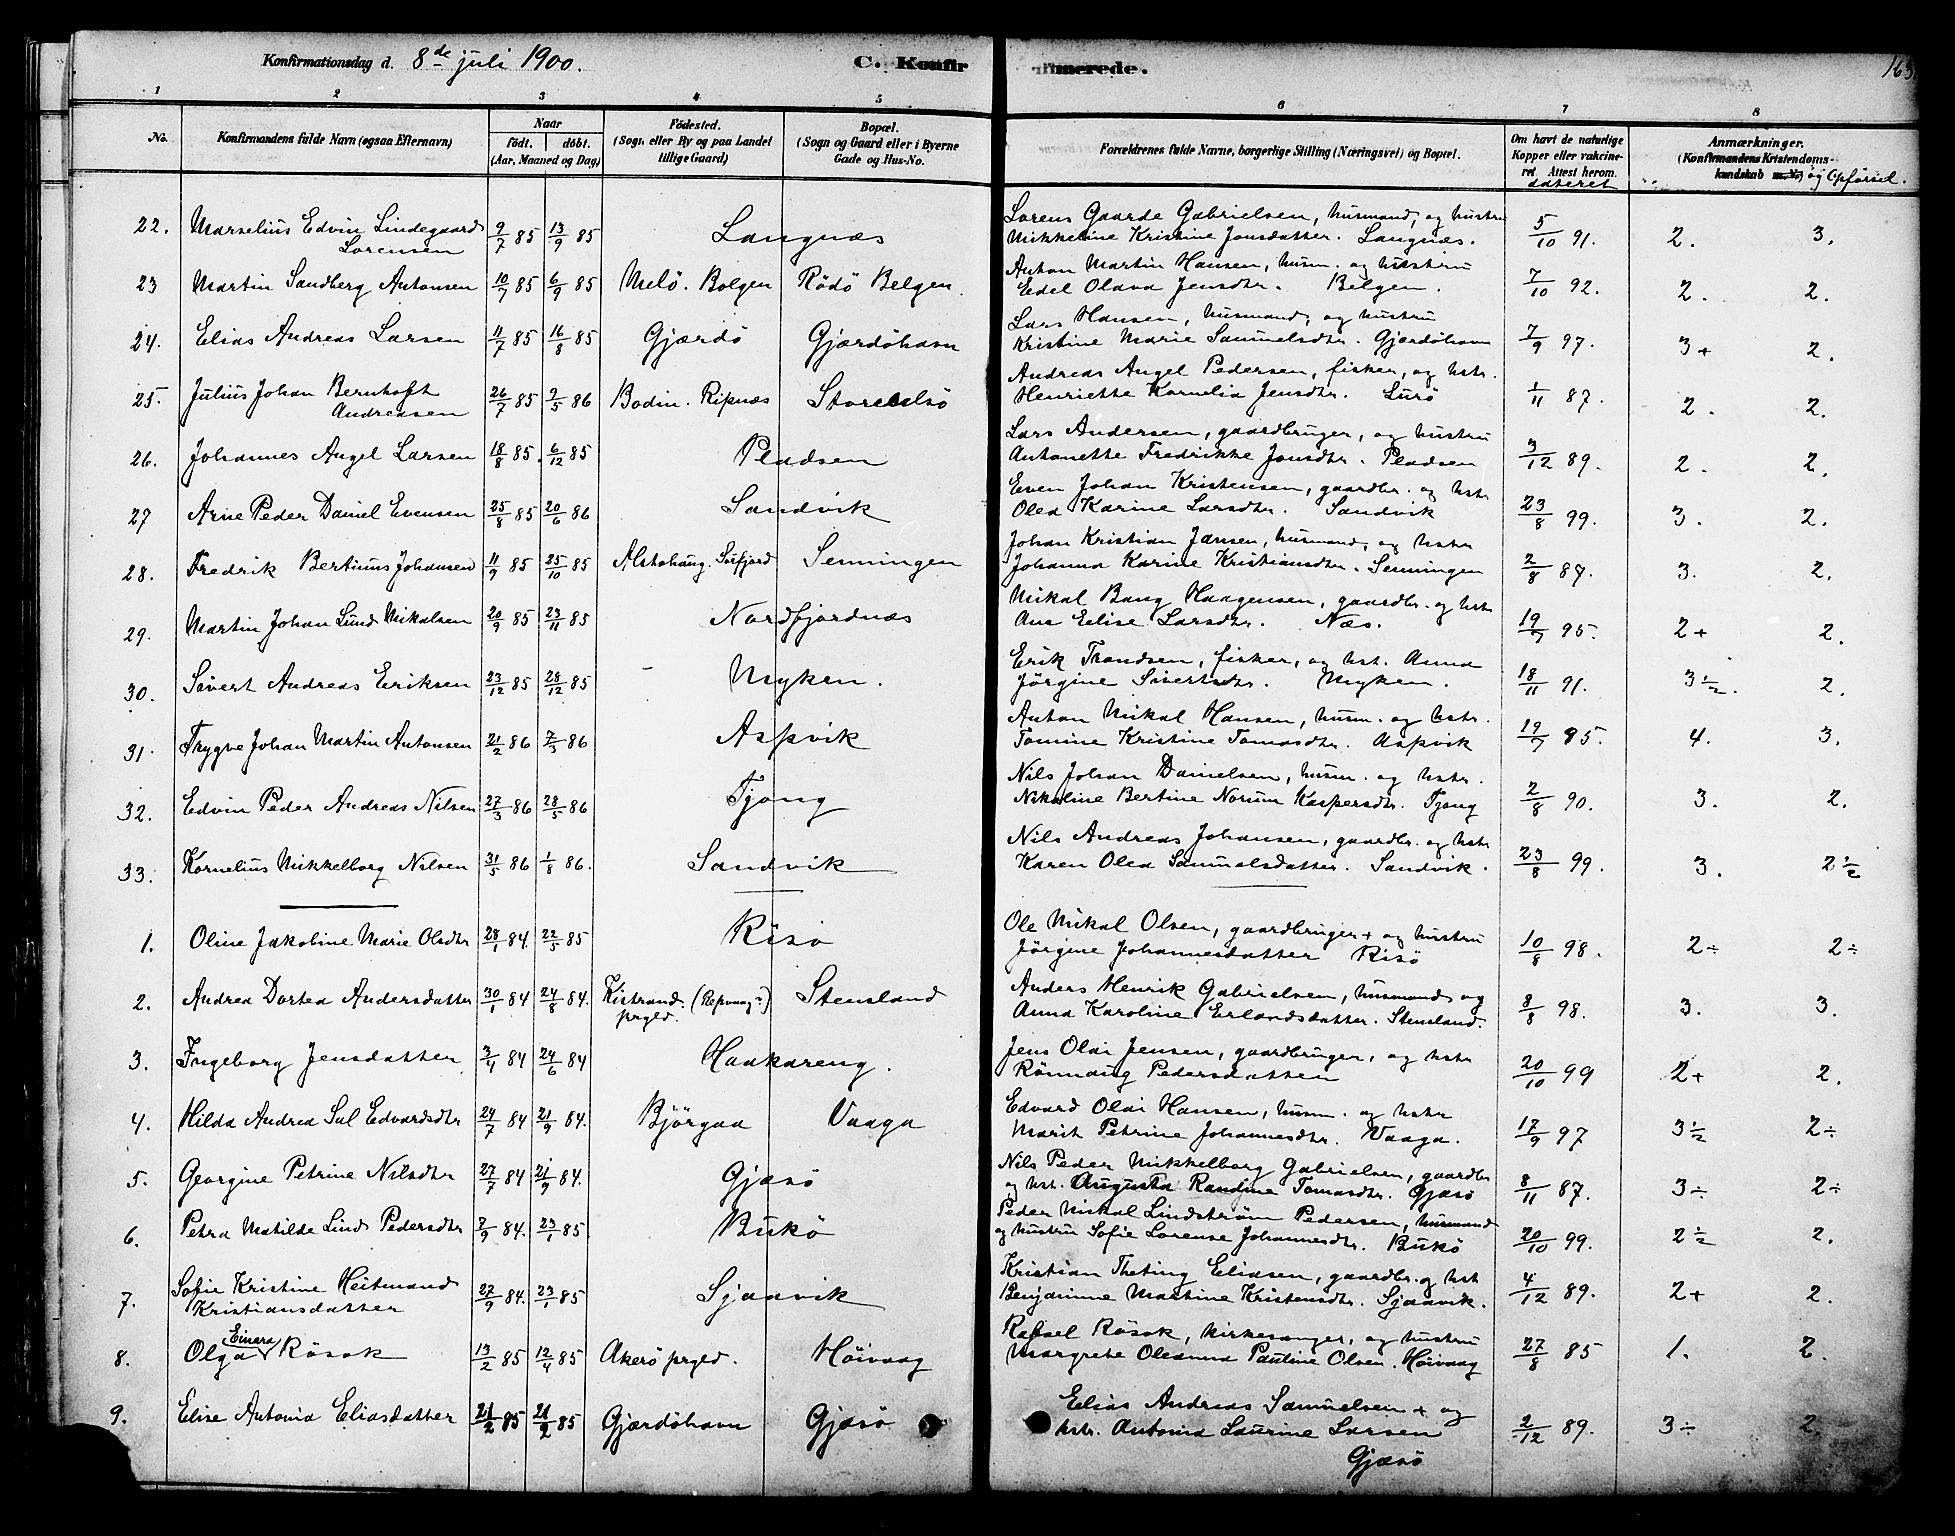 Konfirmationsdag d. 8de juli 1900.
C. Konfirmerede.
163
1 2 3 4 5 6 7 8
No. Konfirmandens fulde Navn (ogsaa Efternavn) Naar Født. døbt. (Aar, Maaned og Dag) Fødested. (Sogn eller By og paa Landet tillige Gaard) Bopæl. (Sogn og Gaard eller i Byerne Gade og Hus-No. Forældrenes fulde Navne, borgerlige Stilling (Næringsvei) og Bopæl. Om havt de naturlige Kopper eller vakcineret. Attest herom. dateret Anmærkninger. (Konfirmandens Kristendomskundskab m.V.) og Opførsel.
22. Marselius Edvin Lindegaard Lorensen 9/7 85 13/9 85 Langnæs Lorens Gaarde Gabrielsen, husmand, og hustru Mikkeline Kristine Jonsdatter. Langnæs. 5/10 91. 2. 3.
23 Martin Sandberg Antonsen 10/7 85 6/9 85 Melö. Bolgen Rödö Belgen. Anton Martin Hansen, husm. og hustru Edel Olava Jensdtr. Belgen. 7/10 92. 2. 2.
24. Elias Andreas Larsen 11/7 85 16/8 85 Gjærdö Gjærdöhavn Lars Hansen, husmand, og hustru Kristine Marie Samuelsdtr. Gjærdöhavn 7/9 97. 3+ 2.
25. Julius Johan Bernhoft Andreasen 26/7 85 2/5 86 Bodin. Ripnæs Storselsö Andreas Angel Pedersen, fisker, og hstr. Henriette Kornelia Jensdtr. Lurö 1/11 87. 2. 2.
26. Johannes Angel Larsen 18/8 85. 6/12 85 Pladsen Lars Andersen, gaardbruger, og hustru Antonette Fredrikke Jonsdtr. Pladsen 3/12 89. 2. 2.
27 Arne Peder Daniel Evensen 25/8 85 20/6 86 Sandvik Even Johan Kristensen, gaardbr. og hstr Olea Karine Larsdtr. Sandvik 23/8 99. 3. 2.
28. Fredrik Bertinus Johansen 11/9 85 25/10 85 Alstahaug. Sörfjord Senningen Johan Kristian Jansen, husmand, og hstr Johanna Karine Kristiansdtr. Senningen 2/8 87. 3. 2.
29. Martin Johan Lund Mikalsen 20/9 85 23/11 85 Nordfjordnæs Mikal Bang Haagensen, gaardbr. og hstr Ane Elise Larsdtr. Næs. 19/7 95. 2+ 2.
30. Sivert Andreas Eriksen 23/12 85 28/12 85 Myken. Erik Trondsen, fisker, og hst. Anna Jörgine Sivertsdtr. Myken. 18/11 91. 3½. 2.
31. Trygve Johan Martin Antonsen 21/2 86 7/3 86 Aspvik Anton Mikal Hansen, husm. og hstr. Tomine Kristine Tomasdtr. Aspvik 19/7 95. 4. 3.
32. Edvin Peder Andreas Nilsen 27/3 86 28/5 86 Tjong Nils Johan Danielsen, husm. og hstr. Nikoline Bertine Norum Kaspersdtr. Tjong 2/8 90. 3. 2.
33. Kornelius Mikkelborg Nilsen 31/5 86 1/8 86. Sandvik Nils Andreas Johansen, gaardbr. og hstr Karen Olea Samuelsdatter. Sandvik. 23/8 99. 3. 2½
1. Oline Jakobine Marie Olsdtr 28/1 84. 22/5 85 Risö Ole Mikal Olsen, gaardbruger + og hustru Jörgine Johannesdatter Risö 10/8 98. 2÷ 2÷
2. Andrea Dortea Andersdatter 30/1 84 24/8 84. Kistrand prgld. (Repvaag?) Stensland Anders Henrik Gabrielsen, husmand og Anna Karoline Erlandsdatter. Stensland. 8/8 98. 3. 3.
3. Ingeborg Jensdatter 3/4 84 24/6 84 Haakareng. Jens Olai Jensen, gaardbruger, og hstr Rönnaug Pedersdatter 20/10 99 2+ 2.
4. Hilda Andrea Sul Edvardsdtr 24/7 84 21/9 84. Björgaa Vaaga Edvard Olai Hansen, husm. og hstr Marit Petrine Johannesdtr. Vaaga. 17/9 97 3½ 2÷
5. Georgine Petrine Nilsdtr 27/7 84 21/9 84. Gjæsö Nils Peder Mikkelborg Gabrielsen, gaardbr og hst. Augusta Randine Tomasdtr. Gjæsö 8/11 87. 3÷ 2÷
6. Petra Matilde Lind Pedersdtr 2/9 84. 23/1 85 Bukö Peder Mikal Lindström Pedersen, husmand og hustru Sofie Lorense Johannesdtr. Bukö 20/10 99. 2½ 2.
7. Sofie Kristine Heitmand Kristiansdatter 22/9 84. 23/1 85 Sjaavik Kristian Theting Eliasen, gaardbr. og hst Benjamine Martine Kristensdtr. Sjaavik. 4/12 89. 2+ 2.
8. Olga Einara Rösok 13/2 85 12/4 85 Akerö prgld. Höivaag Rafael Rösok, kirkesanger, og hustru Margrete Oleanna Pauline Olsen. Höivaag 27/8 85 1. 2.
9. Elise Antonia Eliasdatter 21/2 85 21/2 85 Gjærdöhavn Gjæsö Elias Andreas Samuelsen + og hstr. Antonia Laurine Larsen Gjæsö 2/12 89. 3÷ 2.